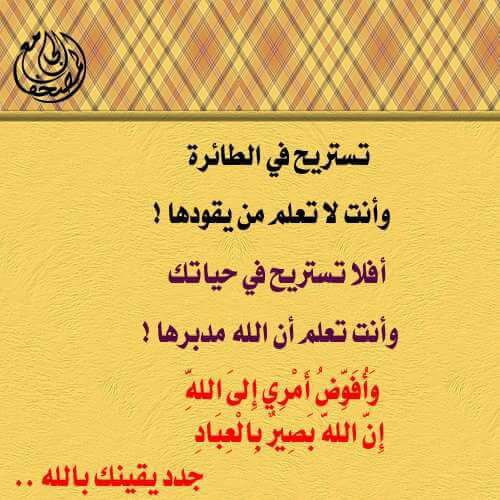 المصحف الجامع
تستريح في الطائرة
وأنت لا تعلم من يقودها !
أفلا تستريح في حياتك
وأنت تعلم أن الله مدبرها !
وَأُفَوِّضُ أَمْرِي إِلَى اللهِ
إِنّ اللهَ بَصِيرٌ بِالْعِبَادِ
جدد يقينك بالله ..